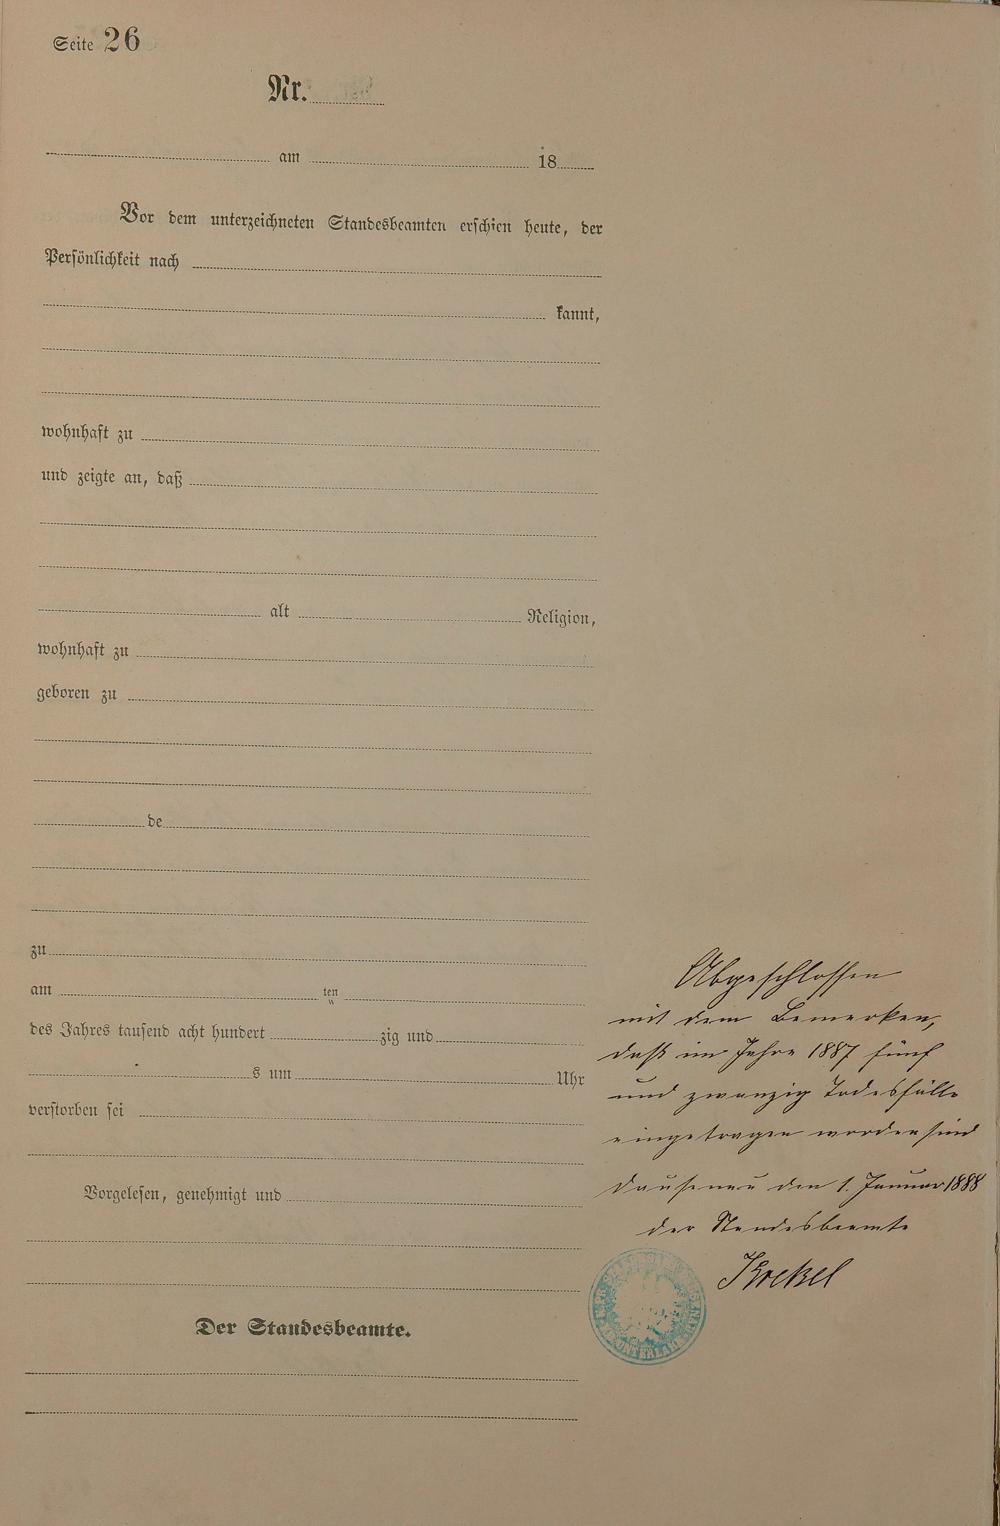 Seite 26
Nr.
am 18
Vor dem unterzeichneten Standesbeamten erschien heute, der
Persönlichkeit nach
kannt,
wohnhaft zu
und zeigte an, daß
alt Religion,
wohnhaft zu
geboren zu
de
zu
am ten
des Jahres tausend acht hundert zig und
s um Uhr
verstorben sei
Vorgelesen, genehmigt und
Der Standesbeamte.
Abgeschlossen
mit dem Bemerken,
daß im Jahre 1887 fünf
und zwanzig Todesfälle
eingetragen worden sind
Dausenau den 1. Januar 1888
der Standesbeamte